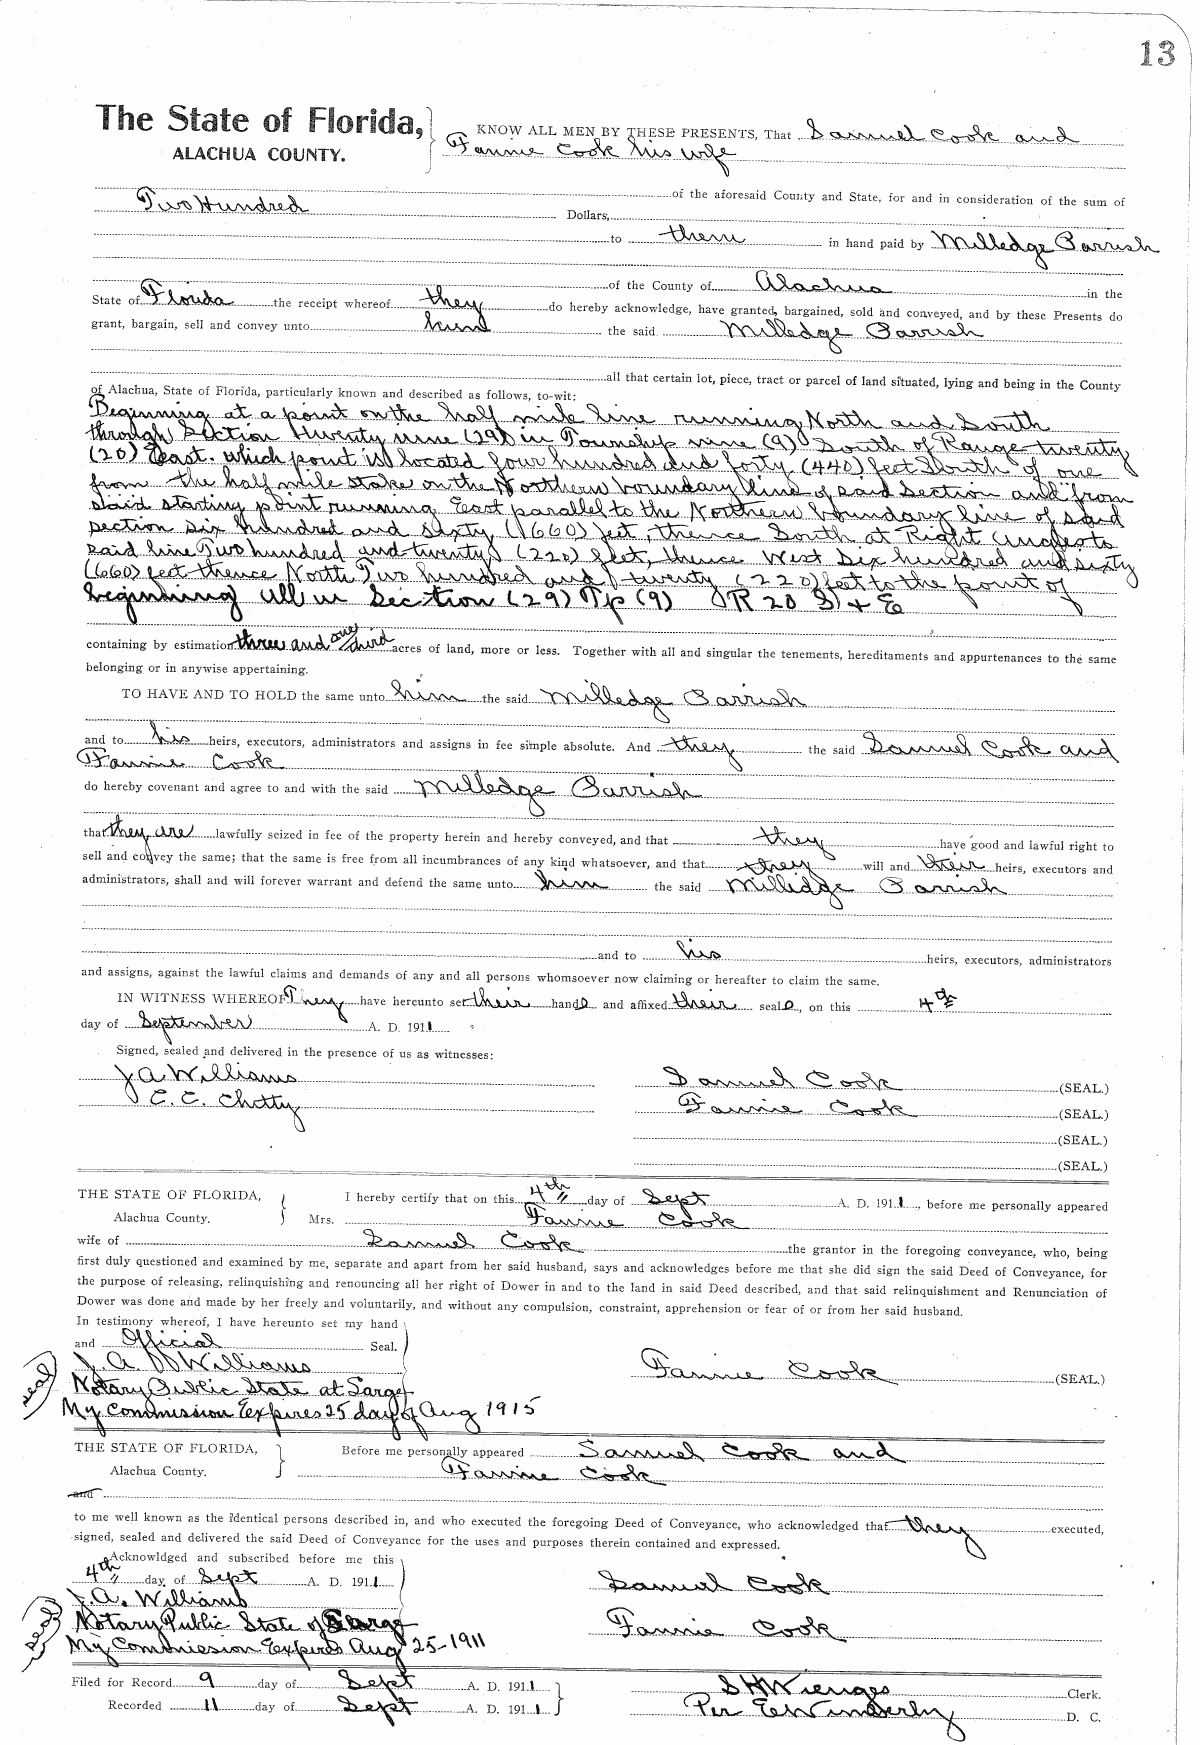 13
The State of Florida,
ALACHUA COUNTY.
KNOW ALL MEN BY THESE PRESENTS, That Samuel Cook and
Fannie Cook his wife
of the aforesaid County and State, for and in consideration of the sum of
Two Hundred Dollars,
to them in hand paid by Milledge Parrish
of the County of Alachua in the
State of Florida the receipt whereof they do hereby acknowledge, have granted, bargained, sold and conveyed, and by these Presents do
grant, bargain, sell and convey unto him the said Milledge Parrish
all that certain lot, piece, tract or parcel of land situated, lying and being in the County
of Alachua, State of Florida, particularly known and described as follows, to-wit:
Beginning at a point on the half mile line running North and South
through Section twenty nine (29) in Township nine (9) South of Range twenty
(20) East. which point is located four hundred and forty (440) feet South of one
from the half mile stake on the Northern boundary line of said Section and from
said starting point running East parallel to the Northern boundary line of said
section six hundred and sixty (660) feet, thence South at Right angles to
said line Two hundred and twenty (220) feet, thence West Six hundred and sixty
(660) feet thence North Two hundred and twenty (220) feet to the point of
beginning all in Section (29) Tp (9) R 20 S + E
containing by estimation three and one third acres of land, more or less. Together with all and singular the tenements, hereditaments and appurtenances to the same
belonging or in anywise appertaining.
TO HAVE AND TO HOLD the same unto him the said Milledge Parrish
and to his heirs, executors, administrators and assigns in fee simple absolute. And they the said Samuel Cook and
Fannie Cook
do hereby covenant and agree to and with the said Milledge Parrish
that they are lawfully seized in fee of the property herein and hereby conveyed, and that they have good and lawful right to
sell and convey the same; that the same is free from all incumbrances of any kind whatsoever, and that they will and their heirs, executors and
administrators, shall and will forever warrant and defend the same unto him the said Milledge Parrish
and to his heirs, executors, administrators
and assigns, against the lawful claims and demands of any and all persons whomsoever now claiming or hereafter to claim the same.
IN WITNESS WHEREOF They have hereunto set their hands and affixed their seals, on this 4th
day of September A. D. 1911
Signed, sealed and delivered in the presence of us as witnesses:
J A Williams Samuel Cook (SEAL.)
C. C. Chitty Fannie Cook (SEAL.)
(SEAL.)
(SEAL.)
THE STATE OF FLORIDA, I hereby certify that on this 4th day of Sept A. D. 1911, before me personally appeared
Alachua County. Mrs. Fannie Cook
wife of Samuel Cook the grantor in the foregoing conveyance, who, being
first duly questioned and examined by me, separate and apart from her said husband, says and acknowledges before me that she did sign the said Deed of Conveyance, for
the purpose of releasing, relinquishing and renouncing all her right of Dower in and to the land in said Deed described, and that said relinquishment and Renunciation of
Dower was done and made by her freely and voluntarily, and without any compulsion, constraint, apprehension or fear of or from her said husband.
In testimony whereof, I have hereunto set my hand
and Official Seal.
J. A Williams Fannie Cook (SEAL.)
(seal) Notary Public State at Large
My Commission Expires 25 day of Aug 1915
THE STATE OF FLORIDA, Before me personally appeared Samuel Cook and
Alachua County. Fannie Cook
and
to me well known as the identical persons described in, and who executed the foregoing Deed of Conveyance, who acknowledged that they executed,
signed, sealed and delivered the said Deed of Conveyance for the uses and purposes therein contained and expressed.
Acknowldged and subscribed before me this
4th day of Sept A. D. 1911 Samuel Cook
J. A. Williams
(seal) Notary Public State of Large Fannie Cook
My Commission Expires Aug 25-1911
Filed for Record 9 day of Sept A. D. 1911 S H Wienges Clerk.
Recorded 11 day of Sept A. D. 1911 Per E Wimberly D. C.